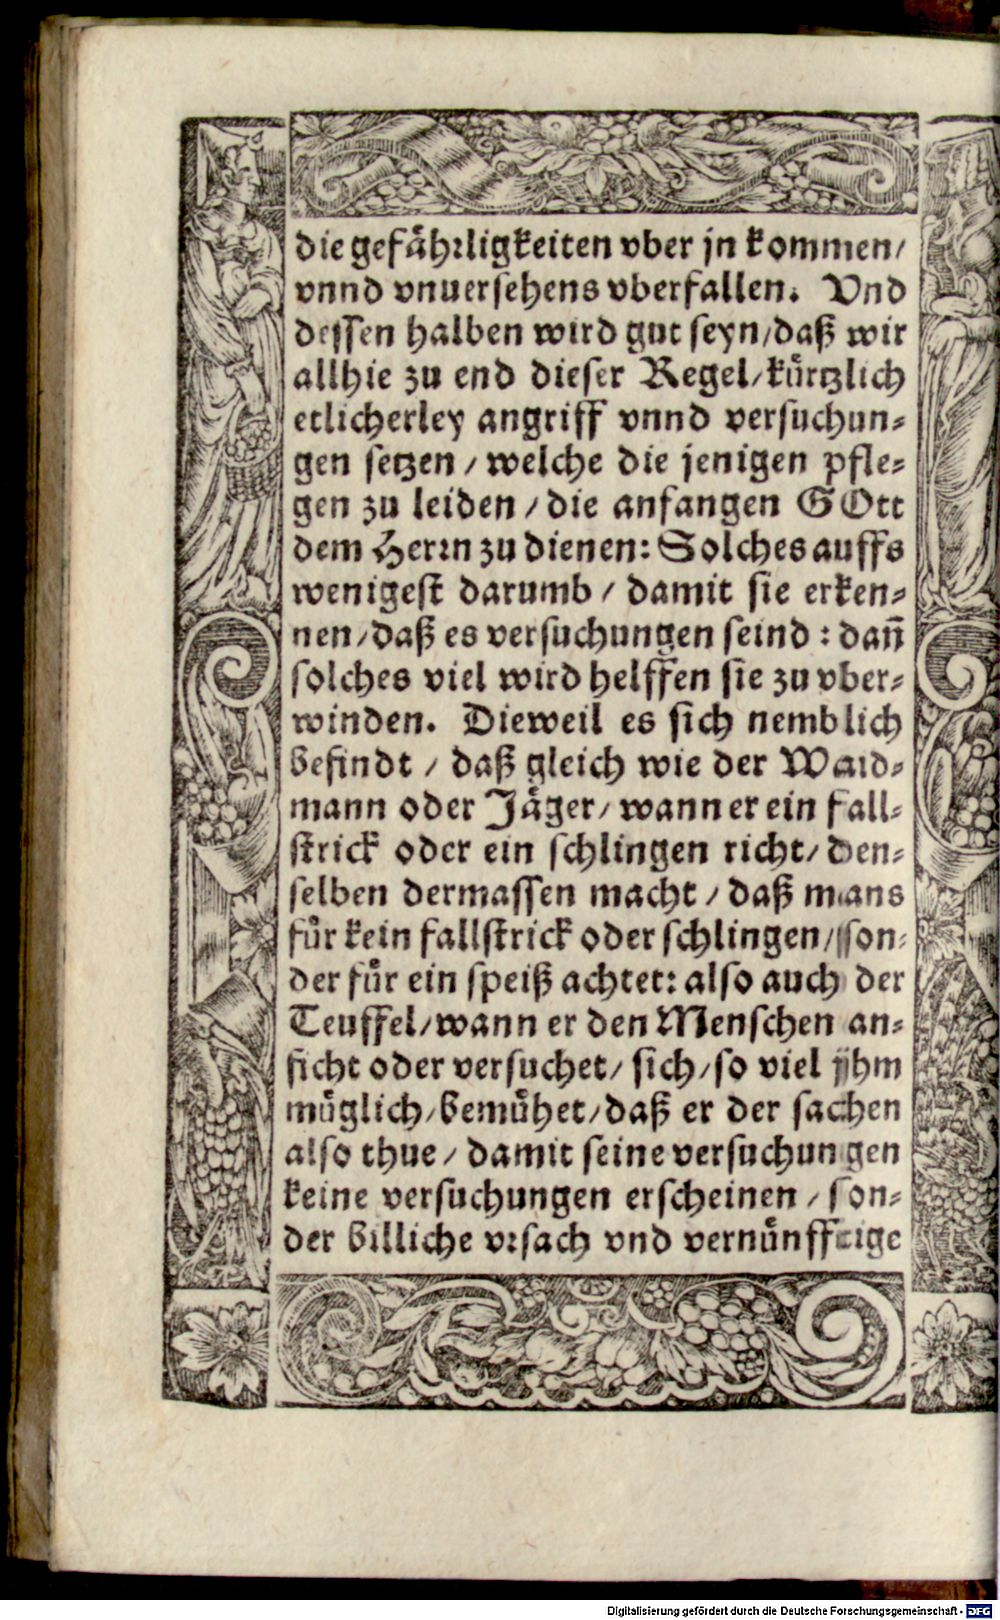 die gefaͤhꝛligkeiten vber jn kommen/
vnnd vnuersehens vberfallen. Vnd
dessen halben wird gut seyn/daß wir
allhie zu end dieser Regel/kuͤrtzlich
etlicherley angriff vnnd versuchun-
gen setzen/welche die jenigen pfle-
gen zu leiden/die anfangen GOtt
dem Herꝛn zu dienen: Solches auffs
wenigest darumb/damit sie erken-
nen/daß es versuchungen seind: dañ
solches viel wird helffen sie zu vber-
winden. Dieweil es sich nemblich
befindt/daß gleich wie der Waid-
mann oder Jaͤger/wann er ein fall-
strick oder ein schlingen richt/den-
selben dermassen macht/daß mans
fuͤr kein fallstrick oder schlingen/son-
der fuͤr ein speiß achtet: also auch der
Teuffel/wann er den Menschen an-
ficht oder versuchet/sich/so viel jhm
muͤglich/bemuͤhet/daß er der sachen
also thue/damit seine versuchungen
keine versuchungen erscheinen/son-
der billiche vꝛsach vnd vernuͤnfftige
Digitalisierung gefördert durch die Deutsche Forschungsgemeinschaft - DFG